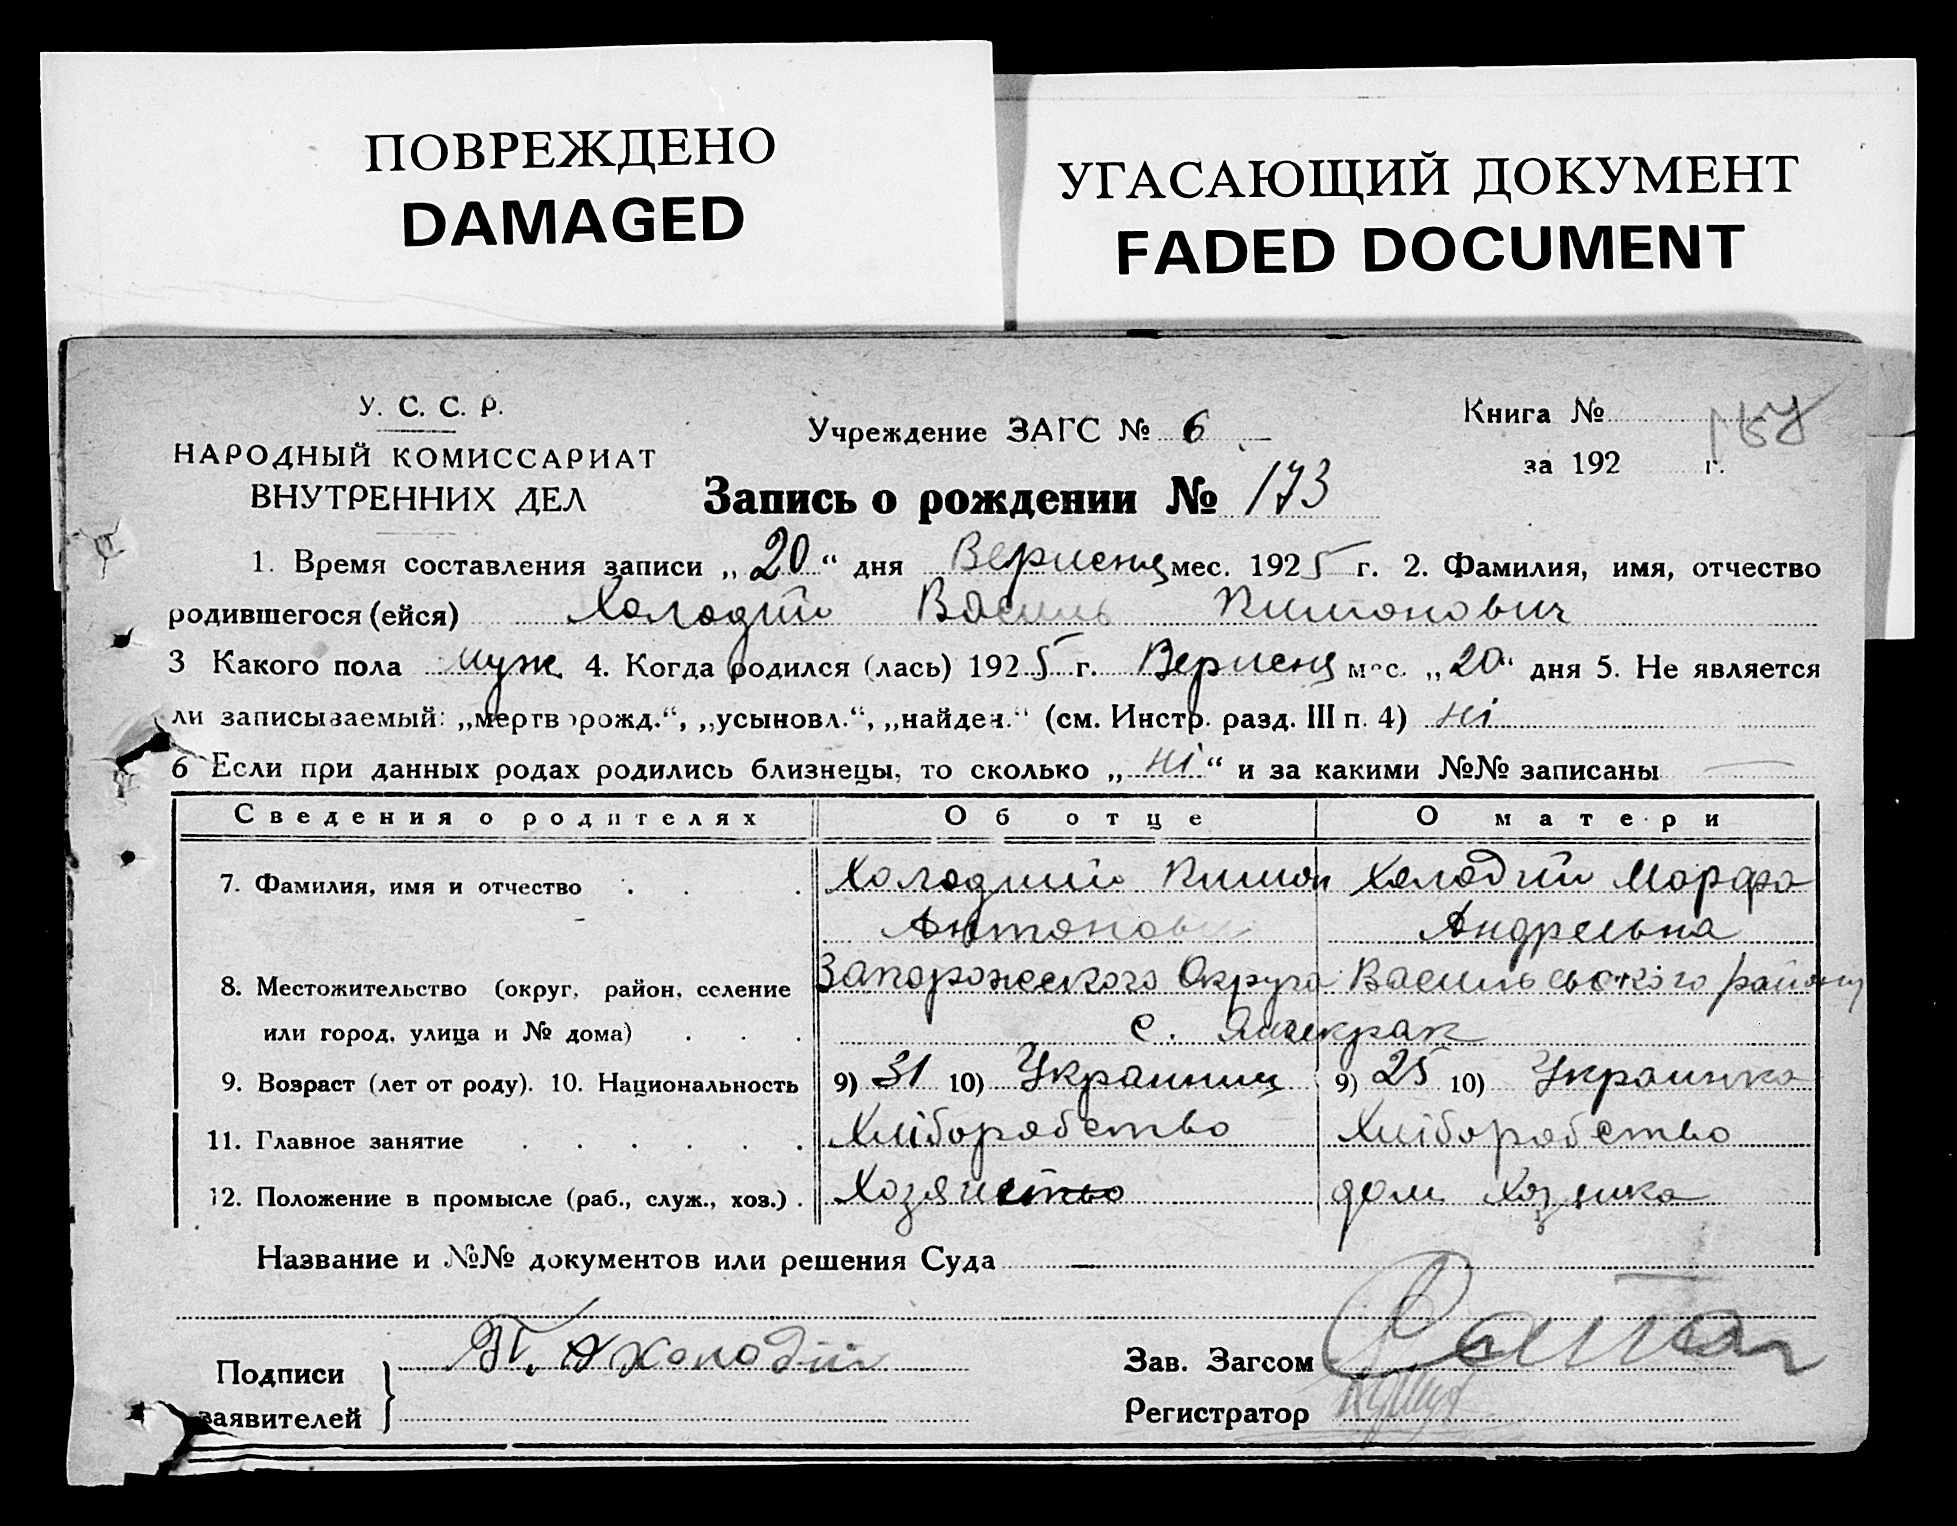 ПОВРЕЖДЕНО
DAMAGED
УГАСАЮЩИЙ ДОКУМЕНТ
FADED DOCUMENT
У. С. С. Р.
НАРОДНЫЙ КОМИССАРИАТ
ВНУТРЕННИХ ДЕЛ
Учреждение ЗАГС № 6
Книга №
за 192 г.
Запись о рождении № 173
1. Время составления записи „20“ дня Вересня мес. 1925 г. 2. Фамилия, имя, отчество
родившегося (ейся) Холодий Василь Пимонович
3 Какого пола муж 4. Когда родился (лась) 1925 г. Вересня мес. „20“ дня 5. Не является
ли записываемый: „мертворожд.“, „усыновл.“, „найден.“ (см. Инстр. разд. III п. 4) ні
6 Если при данных родах родились близнецы, то сколько „ні“ и за какими №№ записаны —
Сведения о родителях Об отце О матери
7. Фамилия, имя и отчество Холодний Пимон Холодий Марфа
Антонови Андреевна
8. Местожительство (округ, район, селение Запорожского Округа Васильевского району
или город, улица и № дома) с. Янчекрак
9. Возраст (лет от роду). 10. Национальность 9) 31 10) Украинец 9) 25 10) Украинка
11. Главное занятие Хлiборобство Хлiборобство
12. Положение в промысле (раб., служ., хоз.) Хозяйство дом хозяйка
Название и №№ документов или решения Суда —
Подписи
заявителей
П. А Холодій
Зав. Загсом
Регистратор